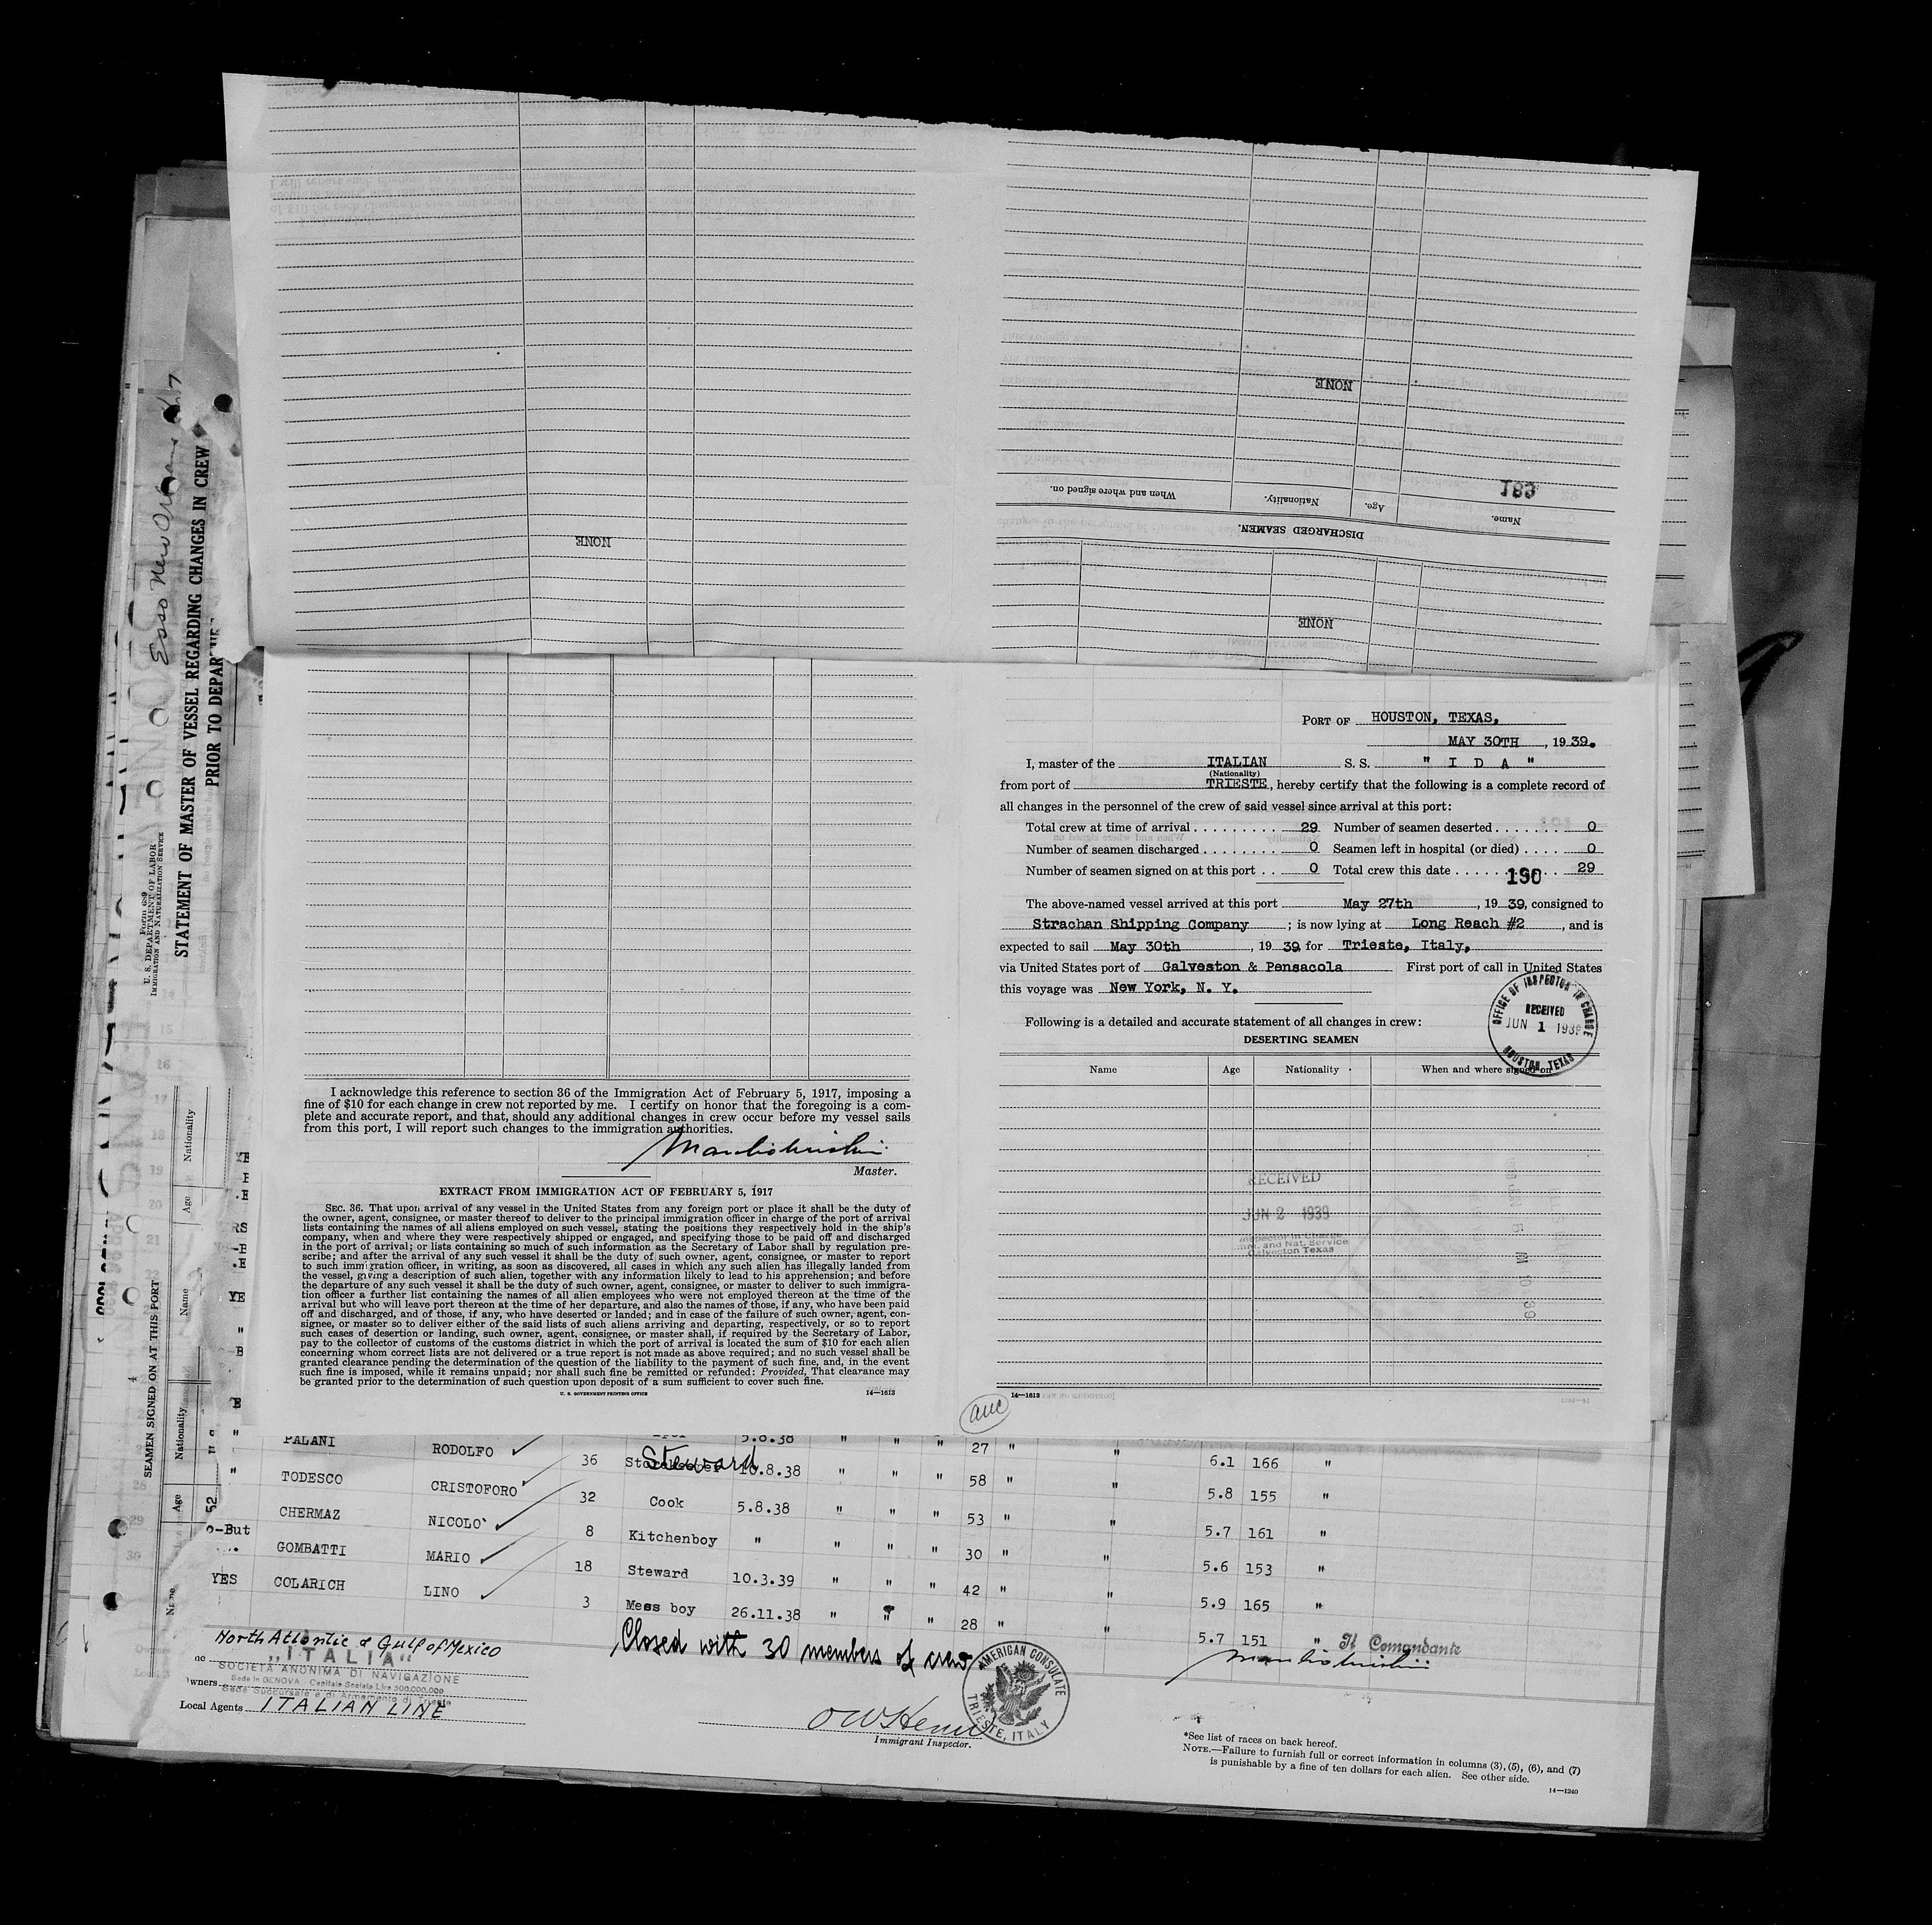 NONE
NONE
183
Name.
Age.
Nationality.
When and where signed on.
DISCHARGED SEAMEN.
NONE
NONE
Esso New Orleans
Form 689
U. S. DEPARTMENT OF LABOR
IMMIGRATION AND NATURALIZATION SERVICE
STATEMENT OF MASTER OF VESSEL REGARDING CHANGES IN CREW
PRIOR TO DEPAR
SEAMEN SIGNED ON AT THIS PORT
Name
Age
Nationality
Name
Age
Nationality
PORT OF HOUSTON, TEXAS,
MAY 30TH, 1939.
I, master of the ITALIAN S. S. " I D A "
(Nationality)
from port of TRIESTE, hereby certify that the following is a complete record of
all changes in the personnel of the crew of said vessel since arrival at this port:
Total crew at time of arrival . . . . . . . . . 29 Number of seamen deserted . . . . . . . . 0
Number of seamen discharged . . . . . . . . 0 Seamen left in hospital (or died) . . . . 0
Number of seamen signed on at this port . . 0 Total crew this date . . . . . . . . . 29
190
The above-named vessel arrived at this port May 27th, 1939, consigned to
Strachan Shipping Company ; is now lying at Long Reach #2, and is
expected to sail May 30th, 1939 for Trieste, Italy,
via United States port of Galveston & Pensacola First port of call in United States
this voyage was New York, N. Y.
OFFICE OF INSPECTOR IN CHARGE
RECEIVED
JUN 1 1939
HOUSTON, TEXAS
Following is a detailed and accurate statement of all changes in crew:
DESERTING SEAMEN
Name Age Nationality When and where signed on
RECEIVED
JUN 2 1939
Inspector in Charge
Imm. and Nat. Service
Galveston Texas
14—1613
I acknowledge this reference to section 36 of the Immigration Act of February 5, 1917, imposing a
fine of $10 for each change in crew not reported by me. I certify on honor that the foregoing is a com-
plete and accurate report, and that, should any additional changes in crew occur before my vessel sails
from this port, I will report such changes to the immigration authorities.
Master.
EXTRACT FROM IMMIGRATION ACT OF FEBRUARY 5, 1917
SEC. 36. That upon arrival of any vessel in the United States from any foreign port or place it shall be the duty of
the owner, agent, consignee, or master thereof to deliver to the principal immigration officer in charge of the port of arrival
lists containing the names of all aliens employed on such vessel, stating the positions they respectively hold in the ship's
company, when and where they were respectively shipped or engaged, and specifying those to be paid off and discharged
in the port of arrival; or lists containing so much of such information as the Secretary of Labor shall by regulation pre-
scribe; and after the arrival of any such vessel it shall be the duty of such owner, agent, consignee, or master to report
to such immigration officer, in writing, as soon as discovered, all cases in which any such alien has illegally landed from
the vessel, giving a description of such alien, together with any information likely to lead to his apprehension; and before
the departure of any such vessel it shall be the duty of such owner, agent, consignee, or master to deliver to such immigra-
tion officer a further list containing the names of all alien employees who were not employed thereon at the time of the
arrival but who will leave port thereon at the time of her departure, and also the names of those, if any, who have been paid
off and discharged, and of those, if any, who have deserted or landed; and in case of the failure of such owner, agent, con-
signee, or master so to deliver either of the said lists of such aliens arriving and departing, respectively, or so to report
such cases of desertion or landing, such owner, agent, consignee, or master shall, if required by the Secretary of Labor,
pay to the collector of customs of the customs district in which the port of arrival is located the sum of $10 for each alien
concerning whom correct lists are not delivered or a true report is not made as above required; and no such vessel shall be
granted clearance pending the determination of the question of the liability to the payment of such fine, and, in the event
such fine is imposed, while it remains unpaid; nor shall such fine be remitted or refunded: Provided, That clearance may
be granted prior to the determination of such question upon deposit of a sum sufficient to cover such fine.
U. S. GOVERNMENT PRINTING OFFICE 14—1613
" PALANI RODOLFO 5.8.38 " " " 27 " " 6.1 166 "
" TODESCO CRISTOFORO 36 Steward 10.8.38 " " " 58 " " 5.8 155 "
CHERMAZ NICOLO' 32 Cook 5.8.38 " " " 53 " " 5.7 161 "
GOMBATTI MARIO 8 Kitchenboy " " " " 30 " " 5.6 153 "
YES COLARICH LINO 18 Steward 10.3.39 " " " 42 " " 5.9 165 "
3 Mess boy 26.11.38 " " " 28 " " 5.7 151 "
Closed with 30 members of crew
Il Comandante
North Atlantic & Gulf of Mexico
"ITALIA"
SOCIETÀ ANONIMA DI NAVIGAZIONE
Sede in GENOVA - Capitale Sociale Lire 500.000.000
Sede Succursale e di Armamento di Trieste
Owners
Local Agents ITALIAN LINE
Immigrant Inspector.
AMERICAN CONSULATE
TRIESTE, ITALY
*See list of races on back hereof.
NOTE.—Failure to furnish full or correct information in columns (3), (5), (6), and (7)
is punishable by a fine of ten dollars for each alien. See other side.
14—1240